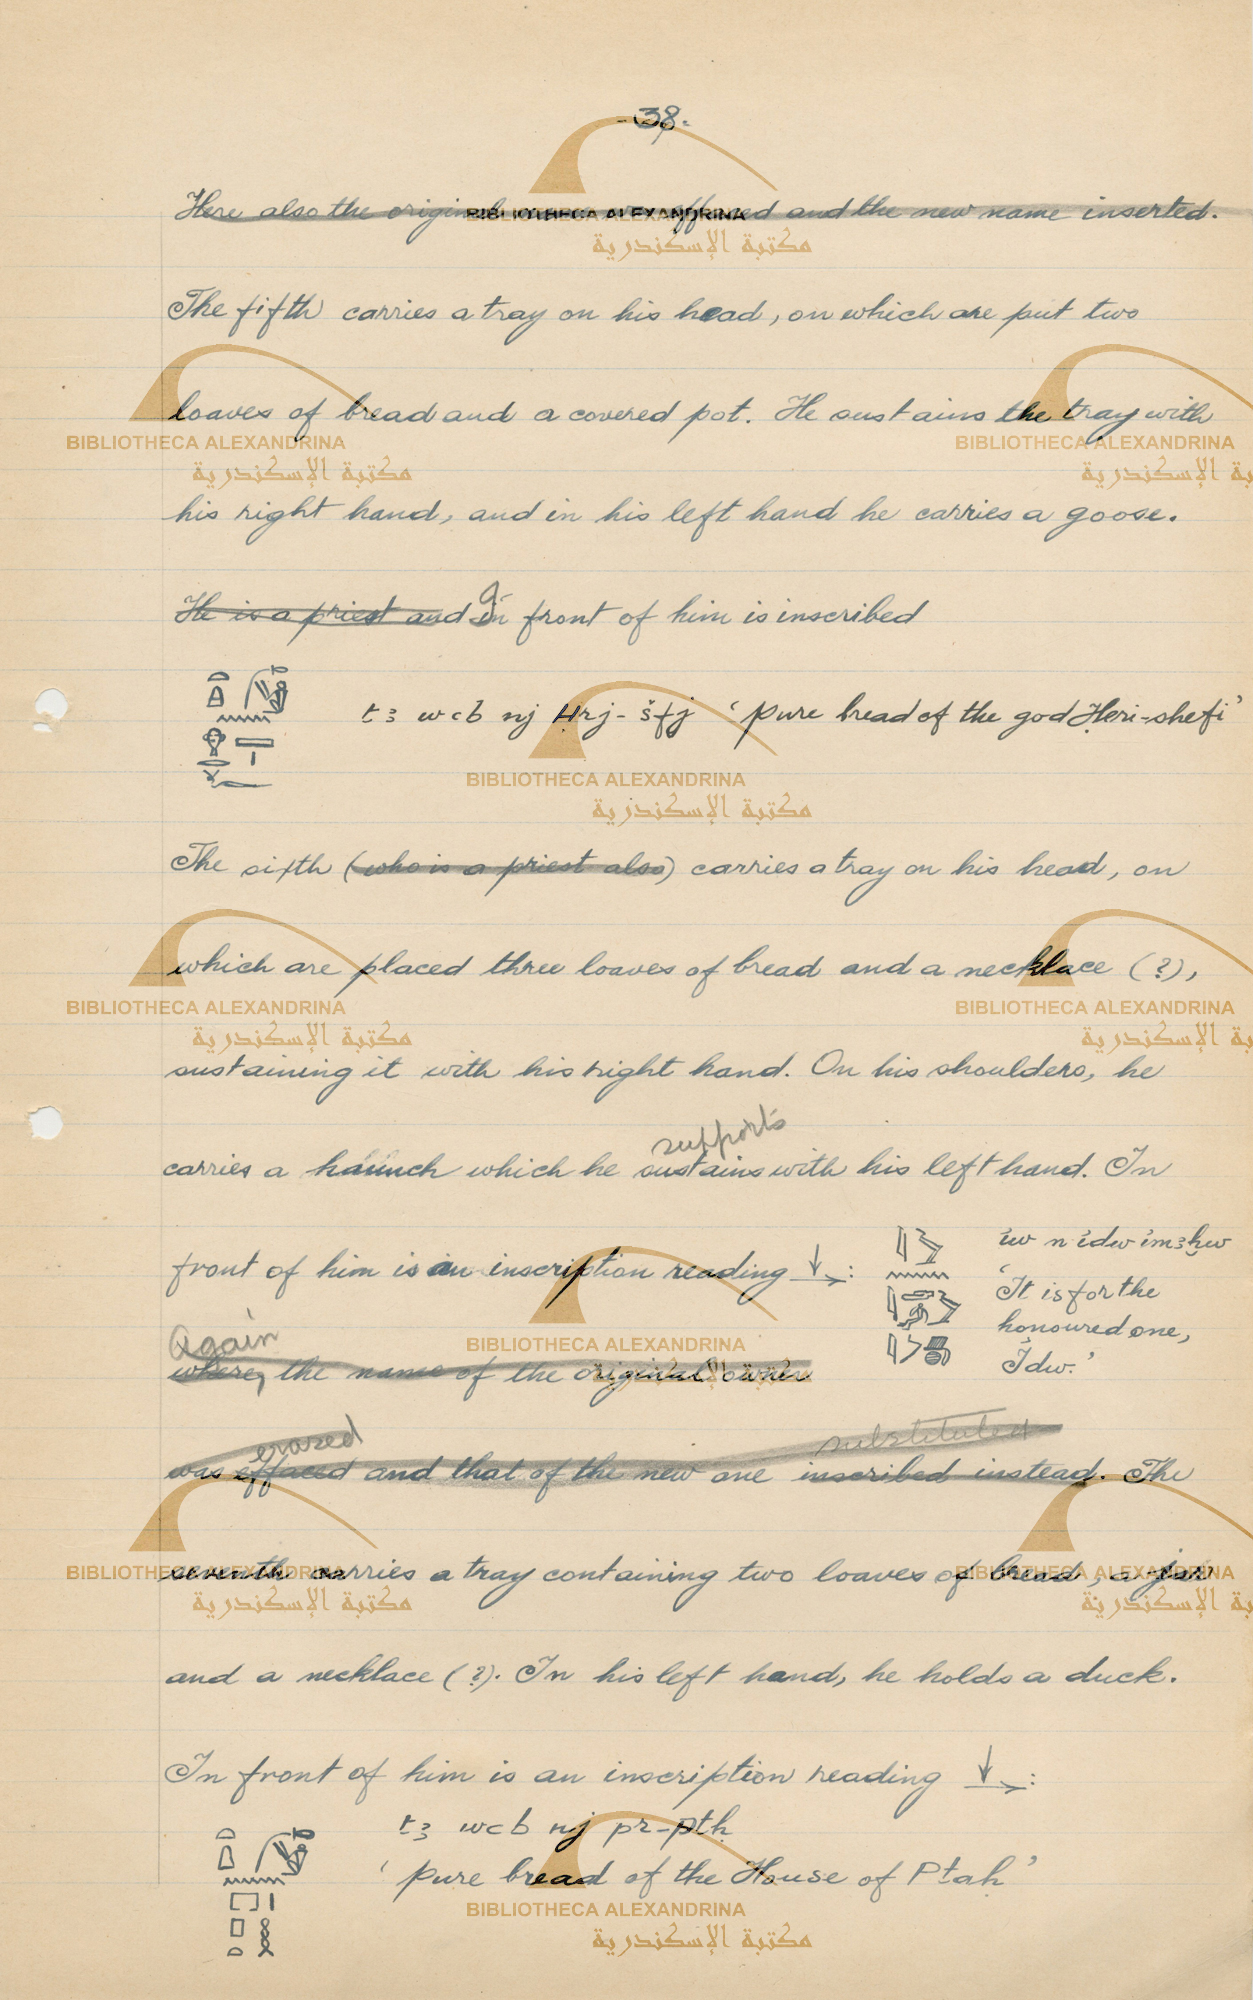 -38-
Here also the original name was effaced and the new name inserted.
The fifth carries a tray on his head, on which are put two
loaves of bread and a covered pot. He sustains the tray with
his right hand, and in his left hand he carries a goose.
He is a priest and In front of him is inscribed
t3 wcb nj Ḥrj-šfj 'pure bread of the god Ḥeri-shefi'
The sixth (who is a priest also) carries a tray on his head, on
which are placed three loaves of bread and a necklace (?),
sustaining it with his right hand. On his shoulders, he
supports
carries a haunch which he sustains with his left hand. In
front of him is an inscription reading ↓→:
iw n idw im3ḫw
'It is for the
honoured one,
Idw.'
Again
where, the name of the original owner
erased substituted
was effaced and that of the new one inscribed instead. The
seventh carries a tray containing two loaves of bread, a jar
and a necklace (?). In his left hand, he holds a duck.
In front of him is an inscription reading ↓→:
t3 wcb nj pr-ptḥ
'pure bread of the House of Ptah'
BIBLIOTHECA ALEXANDRINA
مكتبة الإسكندرية